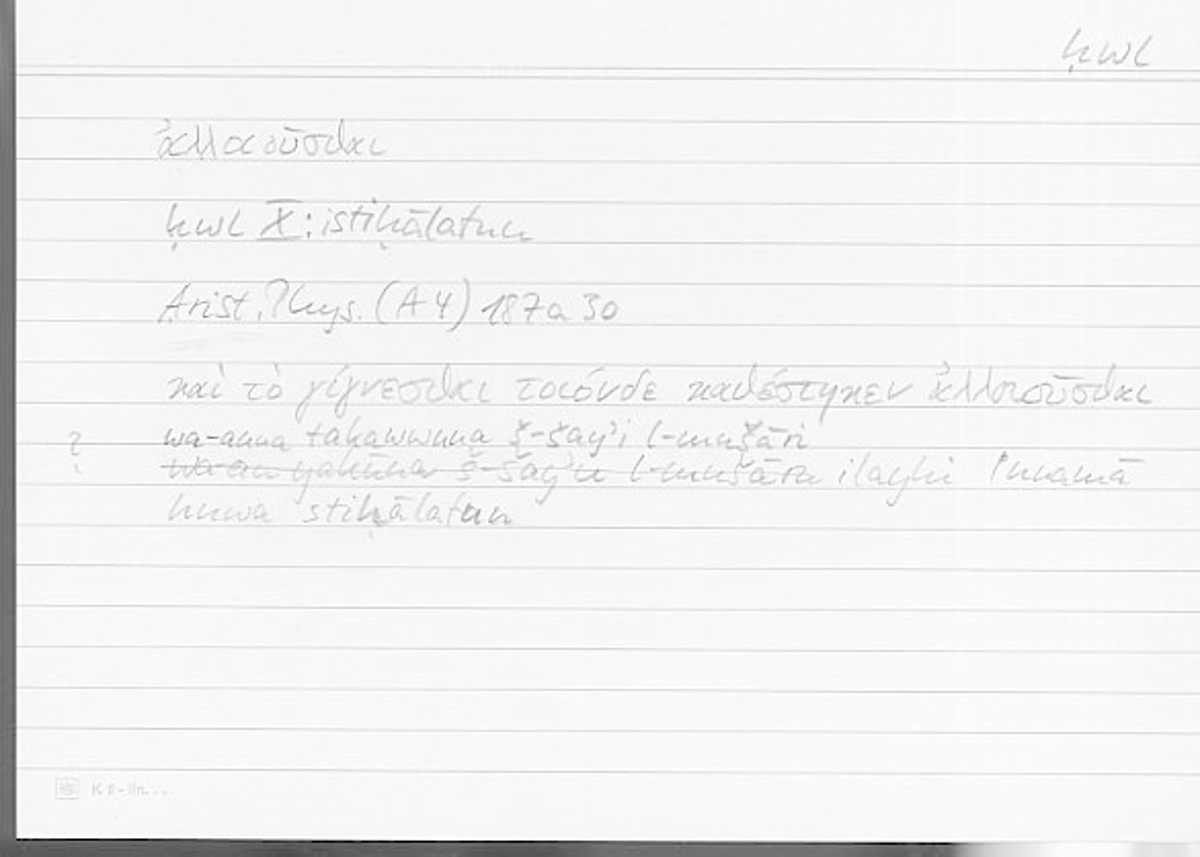 ḥwl
ἀλλοιοῦσθαι
ḥwl X: istiḥālatun
Arist. Phys. (A 4) 187a 30
καὶ τὸ γίγνεσθαι τοιόνδε καθέστηκεν ἀλλοιοῦσθαι
wa-anna takawwuna š-šayʾi l-mušāri
? wa-an yakūna š-šayʾu l-mušāru ilayhi innamā
huwa stiḥālatun